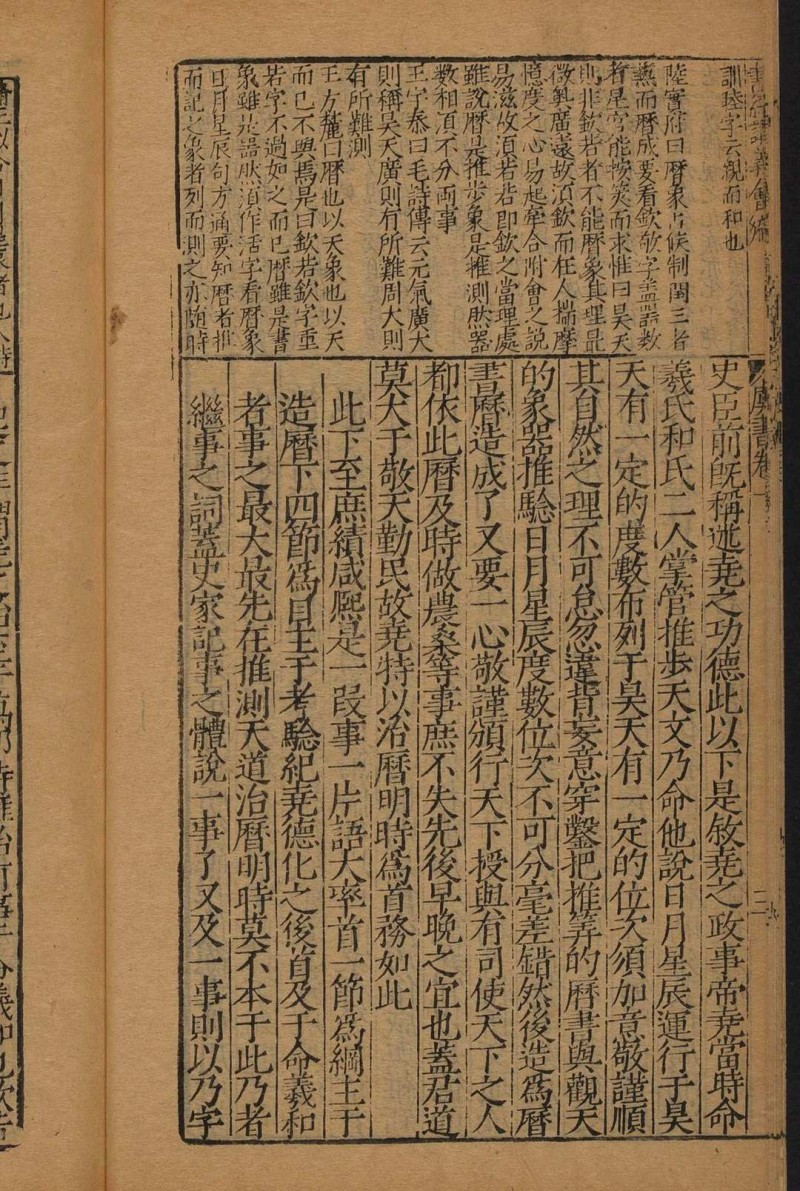 訓睦字云親而和也
陸實府曰曆象占候制閏三者
無而曆成要看欽敬字蓋器數
者星官能按筭而求惟曰昊天
則非欽若者不能曆象其理最
微奧廣遠故湏欽而枉人揣摩
憶度之心易起牽合附會之說
易滋故湏若若即欽之當理處
雖說曆是推步象是推測然器
數相湏不分兩事
王宇泰曰毛詩傳云元氣廣大
則稱昊天廣則有所難周大則
有所難測
王方麓曰曆也以天象也以天
而已不與焉是曰欽若欽字重
若字不過如之而已曆雖是書
象雖是器然湏作活字看曆象
日月星辰句方通要知曆者推
而記之象者列而測之亦随時
史臣前既稱述堯之功德此以下是敘堯之政事帝堯當時命
羲氏和氏二人掌管推步天文乃命他說日月星辰運行于昊
天有一定的度數布列于昊天有一定的位次須加意敬謹順
其自然之理不可怠忽違背妄意穿鑿把推筭的曆書與觀天
的象器推驗日月星辰度數位次不可分毫差錯然後造為曆
書曆造成了又要一心敬謹頒行天下授與有司使天下之人
都依此曆及時做農桑等事庶不失先後早晚之宜也蓋君道
莫大于敬天勤民故堯特以治曆明時為首務如此
此下至庶績咸熙是一段事一片語大率首一節為綱主于
造曆下四節為目主于考驗紀堯德化之後首及于命羲和
者事之最大最先在推測天道治曆明時莫不本于此乃者
繼事之詞蓋史家記事之體說一事了又及一事則以乃字